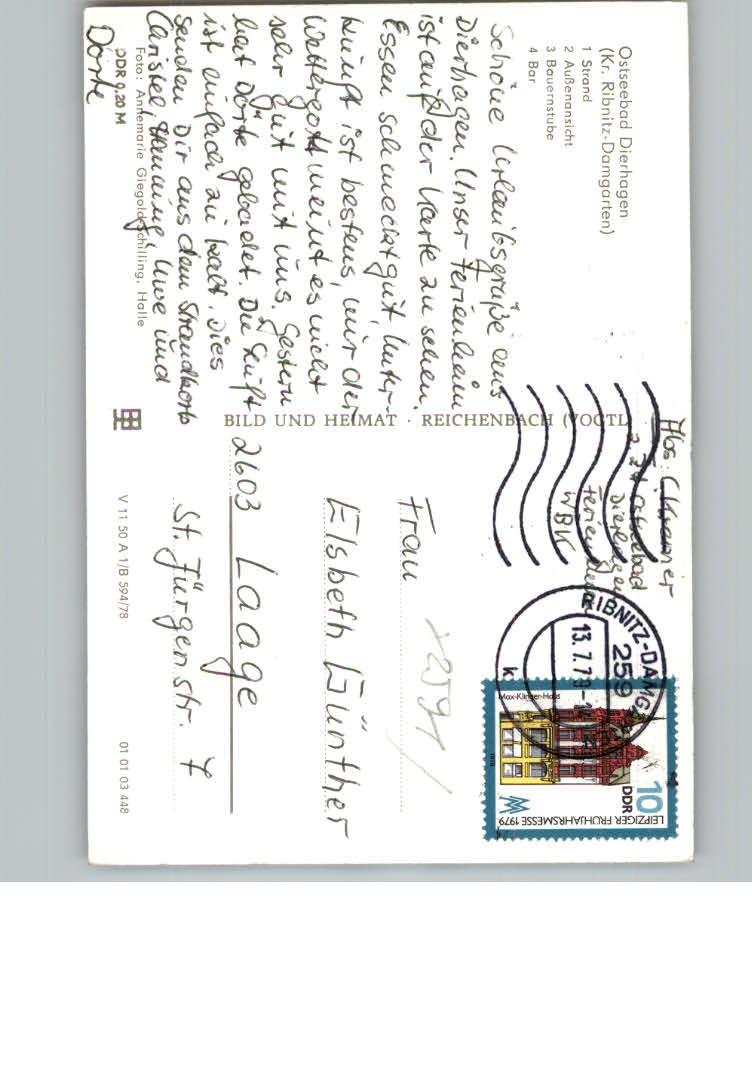 Ostseebad Dierhagen
(Kr. Ribnitz-Damgarten)
1 Strand
2 Außenansicht
3 Bauernstube
4 Bar
Schöne Urlaubsgrüße aus
Dierhagen. Unser Ferienheim
ist auf der Karte zu sehen.
Essen schmeckt gut, Unter-
kunft ist bestens, nur der
Wettergott meint es nicht
sehr gut mit uns. Gestern
hat Dörte gebadet. Die Luft
ist einfach zu kalt. Dies
senden Dir aus dem Strandkorb
Christel, Henning, Uwe und
Dörte
DDR 0,20 M
Foto: Annemarie Giegold-Schilling, Halle
BILD UND HEIMAT · REICHENBACH (VOGTL
V 11 50 A 1/B 594/78
01 01 03 448
Abs: Kramer
Ostseebad
Dierhagen
Ferienheim
WBK
RIBNITZ-DAMG
259
13.7.79-1
k
Max-Klinger-Haus
10
DDR
LEIPZIGER FRÜHJAHRSMESSE 1979
Frau
Elsbeth Günther
2603 Laage
St. Jürgenstr. 7